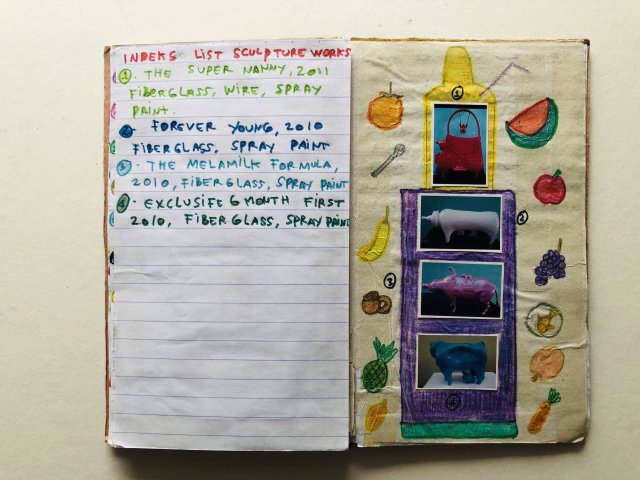 INDEKS LIST SCULPTURE WORKS
1. THE SUPER NANNY, 2011
FIBERGLASS, WIRE, SPRAY
PAINT.
2. FOREVER YOUNG, 2010
FIBERGLASS, SPRAY PAINT
3. THE MELAMILK FORMULA,
2010, FIBERGLASS, SPRAY PAINT
4. EXCLUSIFE 6 MONTH FIRST
2010, FIBERGLASS, SPRAY PAINT
1
2
3
4